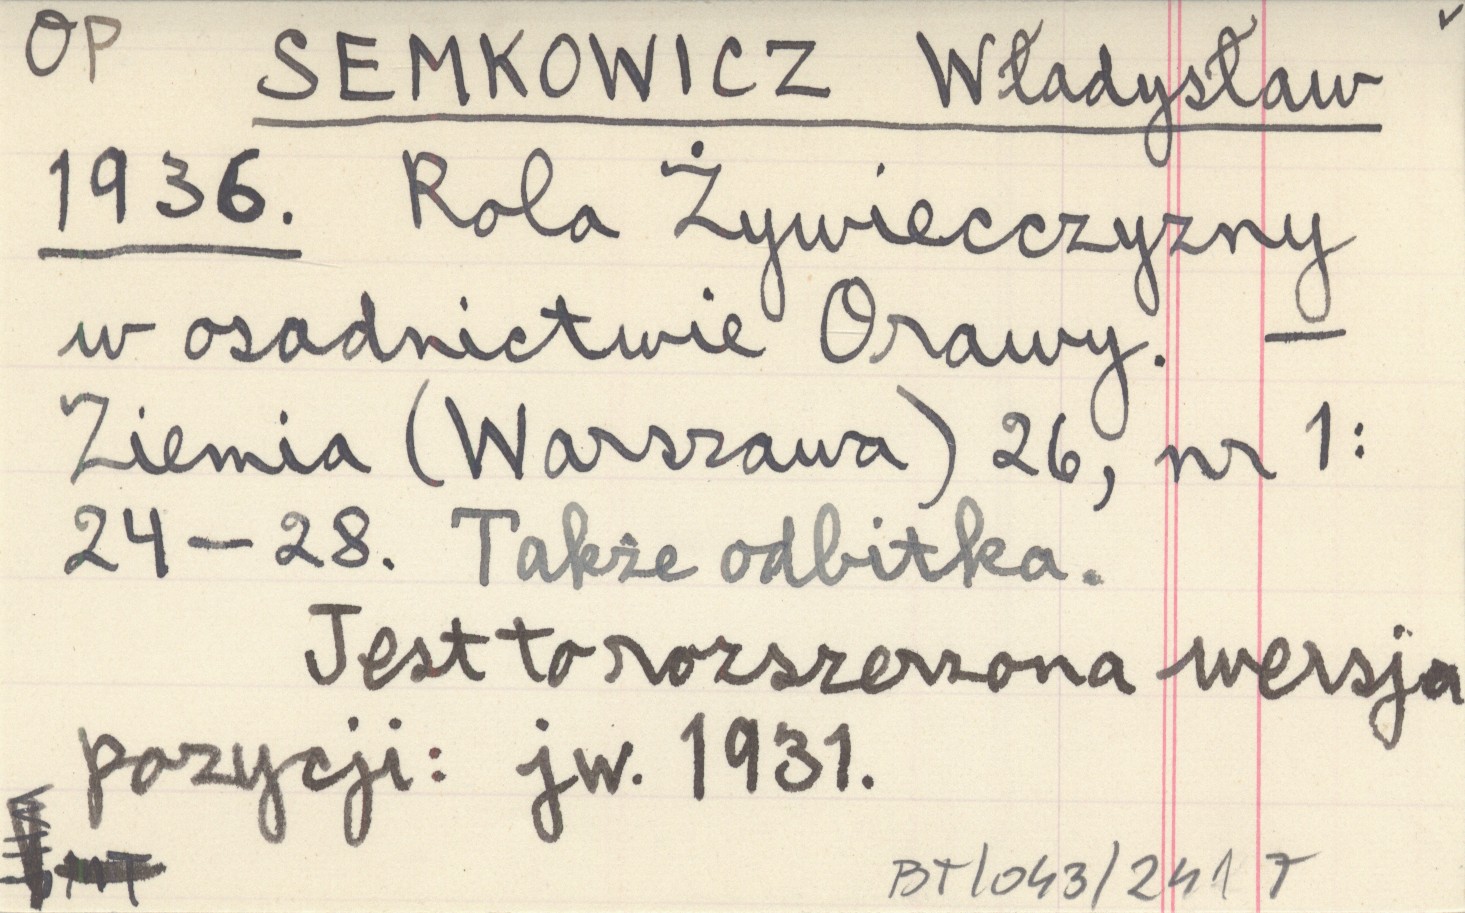 OP SEMKOWICZ Władysław
1936. Rola Żywiecczyzny
w osadnictwie Orawy. —
Ziemia (Warszawa) 26, nr 1:
24-28. Także odbitka.
Jest to rozszerzona wersja
pozycji: jw. 1931.
BT/043/241 7